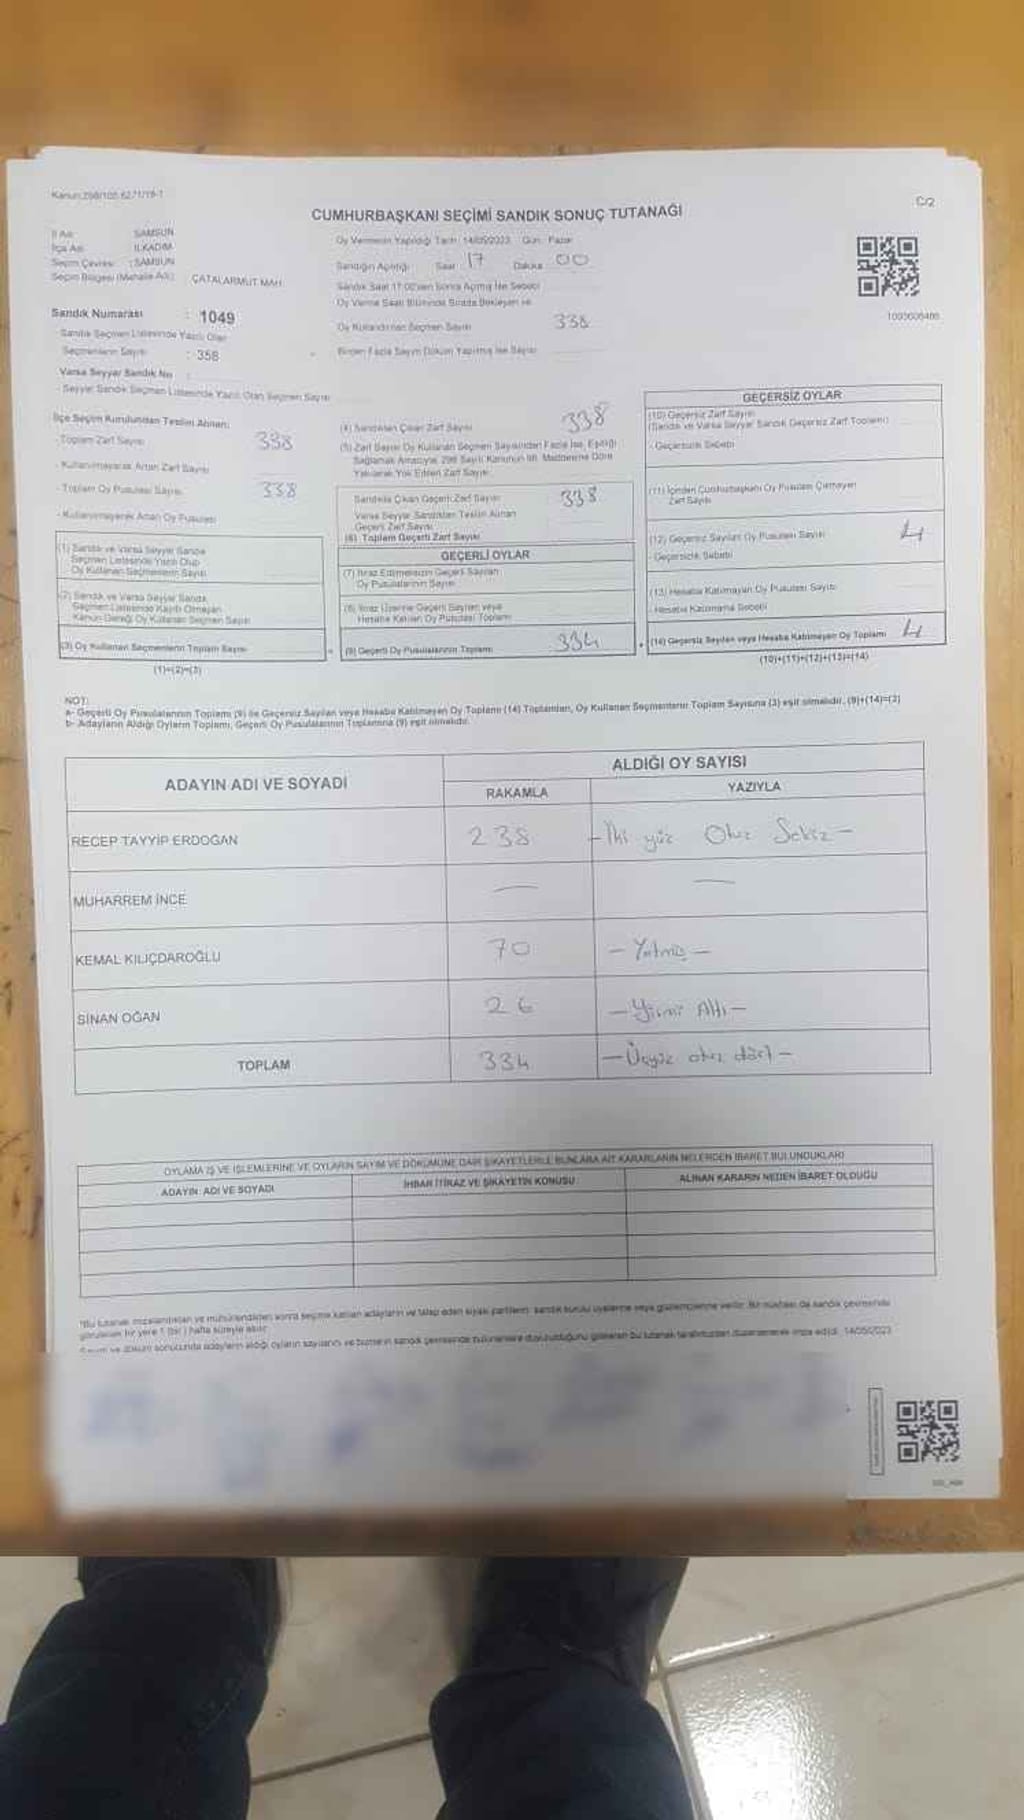 Kanun:298/105 6271/19-1
C/2
CUMHURBAŞKANI SEÇİMİ SANDIK SONUÇ TUTANAĞI
İl Adı : SAMSUN
İlçe Adı : İLKADIM
Seçim Çevresi : SAMSUN
Seçim Bölgesi (Mahalle Adı) ÇATALARMUT MAH.
Sandık Numarası : 1049
Sandık Seçmen Listesinde Yazılı Olan
Seçmenlerin Sayısı : 358
Varsa Seyyar Sandık No :
- Seyyar Sandık Seçmen Listesinde Yazılı Olan Seçmen Sayısı
Oy Vermenin Yapıldığı Tarih: 14/05/2023 Gün: Pazar
Sandığın Açıldığı Saat 17 Dakika 00
Sandık Saat 17:00'den Sonra Açılmış İse Sebebi
Oy Verme Saati Bitiminde Sırada Bekleyen ve
Oy Kullandırılan Seçmen Sayısı 338
Birden Fazla Sayım Döküm Yapılmış İse Sayısı
İlçe Seçim Kurulundan Teslim Alınan:
- Toplam Zarf Sayısı 338
- Kullanılmayarak Artan Zarf Sayısı
- Toplam Oy Pusulası Sayısı 338
- Kullanılmayarak Artan Oy Pusulası
(1) Sandık ve Varsa Seyyar Sandık
Seçmen Listesinde Yazılı Olup
Oy Kullanan Seçmenlerin Sayısı
(2) Sandık ve Varsa Seyyar Sandık
Seçmen Listesinde Kayıtlı Olmayan
Kanun Gereği Oy Kullanan Seçmen Sayısı
(3) Oy Kullanan Seçmenlerin Toplam Sayısı
(1)+(2)=(3)
(4) Sandıktan Çıkan Zarf Sayısı 338
(5) Zarf Sayısı Oy Kullanan Seçmen Sayısından Fazla İse, Eşitliği
Sağlamak Amacıyla, 298 Sayılı Kanunun 98. Maddesine Göre
Yakılarak Yok Edilen Zarf Sayısı
Sandıkta Çıkan Geçerli Zarf Sayısı 338
Varsa Seyyar Sandıktan Teslim Alınan
Geçerli Zarf Sayısı
(6) Toplam Geçerli Zarf Sayısı
GEÇERLİ OYLAR
(7) İtiraz Edilmeksizin Geçerli Sayılan
Oy Pusulalarının Sayısı
(8) İtiraz Üzerine Geçerli Sayılan veya
Hesaba Katılan Oy Pusulası Toplamı
(9) Geçerli Oy Pusulalarının Toplamı 334
GEÇERSİZ OYLAR
(10) Geçersiz Zarf Sayısı
(Sandık ve Varsa Seyyar Sandık Geçersiz Zarf Toplamı)
- Geçersizlik Sebebi
(11) İçinden Cumhurbaşkanı Oy Pusulası Çıkmayan
Zarf Sayısı
(12) Geçersiz Sayılan Oy Pusulası Sayısı 4
- Geçersizlik Sebebi
(13) Hesaba Katılmayan Oy Pusulası Sayısı
- Hesaba Katılmama Sebebi
(14) Geçersiz Sayılan veya Hesaba Katılmayan Oy Toplamı 4
(10)+(11)+(12)+(13)=(14)
NOT:
a- Geçerli Oy Pusulalarının Toplamı (9) ile Geçersiz Sayılan veya Hesaba Katılmayan Oy Toplamı (14) Toplamları, Oy Kullanan Seçmenlerin Toplam Sayısına (3) eşit olmalıdır. (9)+(14)=(3)
b- Adayların Aldığı Oyların Toplamı, Geçerli Oy Pusulalarının Toplamına (9) eşit olmalıdır.
ADAYIN ADI VE SOYADI
ALDIĞI OY SAYISI
RAKAMLA YAZIYLA
RECEP TAYYİP ERDOĞAN 238 -İki yüz Otuz Sekiz-
MUHARREM İNCE — —
KEMAL KILIÇDAROĞLU 70 -Yetmiş-
SİNAN OĞAN 26 -Yirmi Altı-
TOPLAM 334 -Üçyüz otuz dört-
OYLAMA İŞ VE İŞLEMLERİNE VE OYLARIN SAYIM VE DÖKÜMÜNE DAİR ŞİKAYETLERLE BUNLARA AİT KARARLARIN NELERDEN İBARET BULUNDUKLARI
ADAYIN ADI VE SOYADI İHBAR İTİRAZ VE ŞİKAYETİN KONUSU ALINAN KARARIN NEDEN İBARET OLDUĞU
*Bu tutanak imzalandıktan ve mühürlendikten sonra seçime katılan adayların ve talep eden siyasi partilerin sandık kurulu üyelerine veya gözlemcilerine verilir. Bir nüshası da sandık çevresinde
görülecek bir yere 1 (bir) hafta süreyle asılır.
Sayım ve döküm sonucunda adayların aldığı oyların sayılarını ve bunların sandık çevresinde bulunanlara duyurulduğunu gösteren bu tutanak tarafımızdan düzenlenerek imza edildi. 14/05/2023